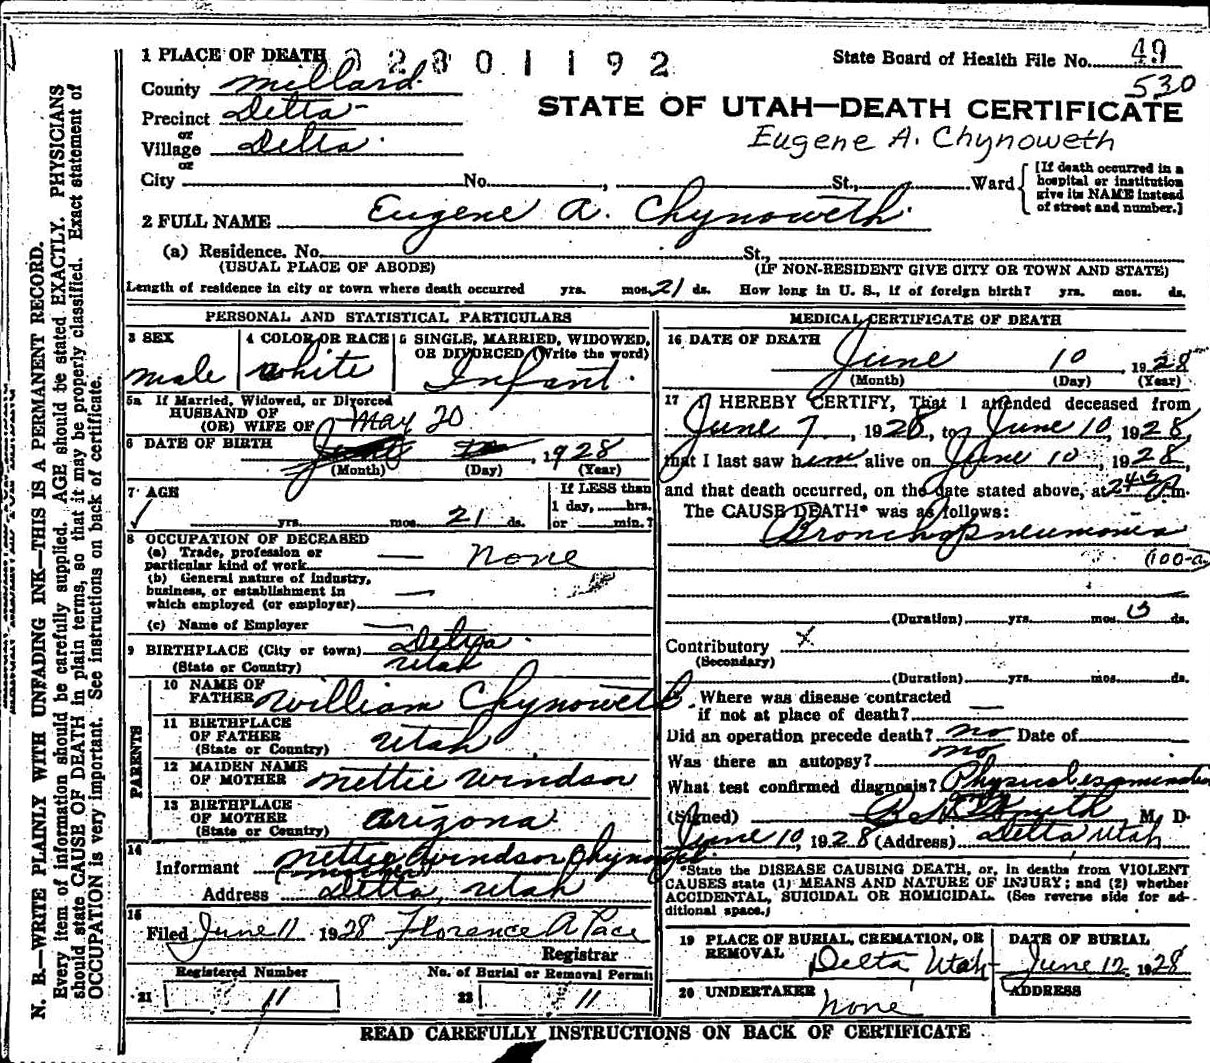 1 PLACE OF DEATH 8 2 3 0 1 1 9 2
State Board of Health File No. 49
530
County Millard
Precinct Delta
or
Village Delta
or
STATE OF UTAH—DEATH CERTIFICATE
Eugene A. Chynoweth
City No. , St., Ward
[If death occurred in a
hospital or institution
give its NAME instead
of street and number.]
2 FULL NAME Eugene A. Chynoweth
(a) Residence. No. St.,
(USUAL PLACE OF ABODE) (IF NON-RESIDENT GIVE CITY OR TOWN AND STATE)
Length of residence in city or town where death occurred yrs. mos. 21 ds. How long in U. S., if of foreign birth? yrs. mos. ds.
PERSONAL AND STATISTICAL PARTICULARS
3 SEX
male
4 COLOR OR RACE
white
5 SINGLE, MARRIED, WIDOWED,
OR DIVORCED (Write the word)
Infant
5a If Married, Widowed, or Divorced
HUSBAND OF
(OR) WIFE OF
May 20
6 DATE OF BIRTH , 1928
(Month) (Day) (Year)
7 AGE
yrs. mos. 21 ds.
If LESS than
1 day, hrs.
or min.?
8 OCCUPATION OF DECEASED
(a) Trade, profession or
particular kind of work — none
(b) General nature of industry,
business, or establishment in
which employed (or employer) —
(c) Name of Employer —
9 BIRTHPLACE (City or town) Delta
(State or Country) Utah
PARENTS
10 NAME OF
FATHER William Chynoweth
11 BIRTHPLACE
OF FATHER
(State or Country) Utah
12 MAIDEN NAME
OF MOTHER Nettie Windsor
13 BIRTHPLACE
OF MOTHER
(State or Country) Arizona
14
Informant Nettie Windsor Chynoweth
(mother)
Address Delta, Utah
15
Filed June 11 1928 Florence A Pace
Registrar
Registered Number
21 11
No. of Burial or Removal Permit
22 11
MEDICAL CERTIFICATE OF DEATH
16 DATE OF DEATH
June 10 1928
(Month) (Day) (Year)
17 I HEREBY CERTIFY, That I attended deceased from
June 7, 1928, to June 10, 1928,
that I last saw him alive on June 10, 1928,
and that death occurred, on the date stated above, at 245 P m.
The CAUSE DEATH* was as follows:
Bronchopneumonia
(100-a)
(Duration) yrs. mos. ds.
Contributory X
(Secondary)
(Duration) yrs. mos. ds.
Where was disease contracted
if not at place of death? —
Did an operation precede death? no Date of
Was there an autopsy? no
What test confirmed diagnosis? Physical examination
(Signed) Smith M. D.
June 10, 1928 (Address) Delta Utah
*State the DISEASE CAUSING DEATH, or, in deaths from VIOLENT
CAUSES state (1) MEANS AND NATURE OF INJURY; and (2) whether
ACCIDENTAL, SUICIDAL OR HOMICIDAL. (See reverse side for ad-
ditional space.)
19 PLACE OF BURIAL, CREMATION, OR
REMOVAL
Delta, Utah
DATE OF BURIAL
June 12, 1928
20 UNDERTAKER
none
ADDRESS
READ CAREFULLY INSTRUCTIONS ON BACK OF CERTIFICATE
N. B.—WRITE PLAINLY WITH UNFADING INK—THIS IS A PERMANENT RECORD.
Every item of information should be carefully supplied. AGE should be stated EXACTLY. PHYSICIANS
should state CAUSE OF DEATH in plain terms, so that it may be properly classified. Exact statement of
OCCUPATION is very important. See instructions on back of certificate.